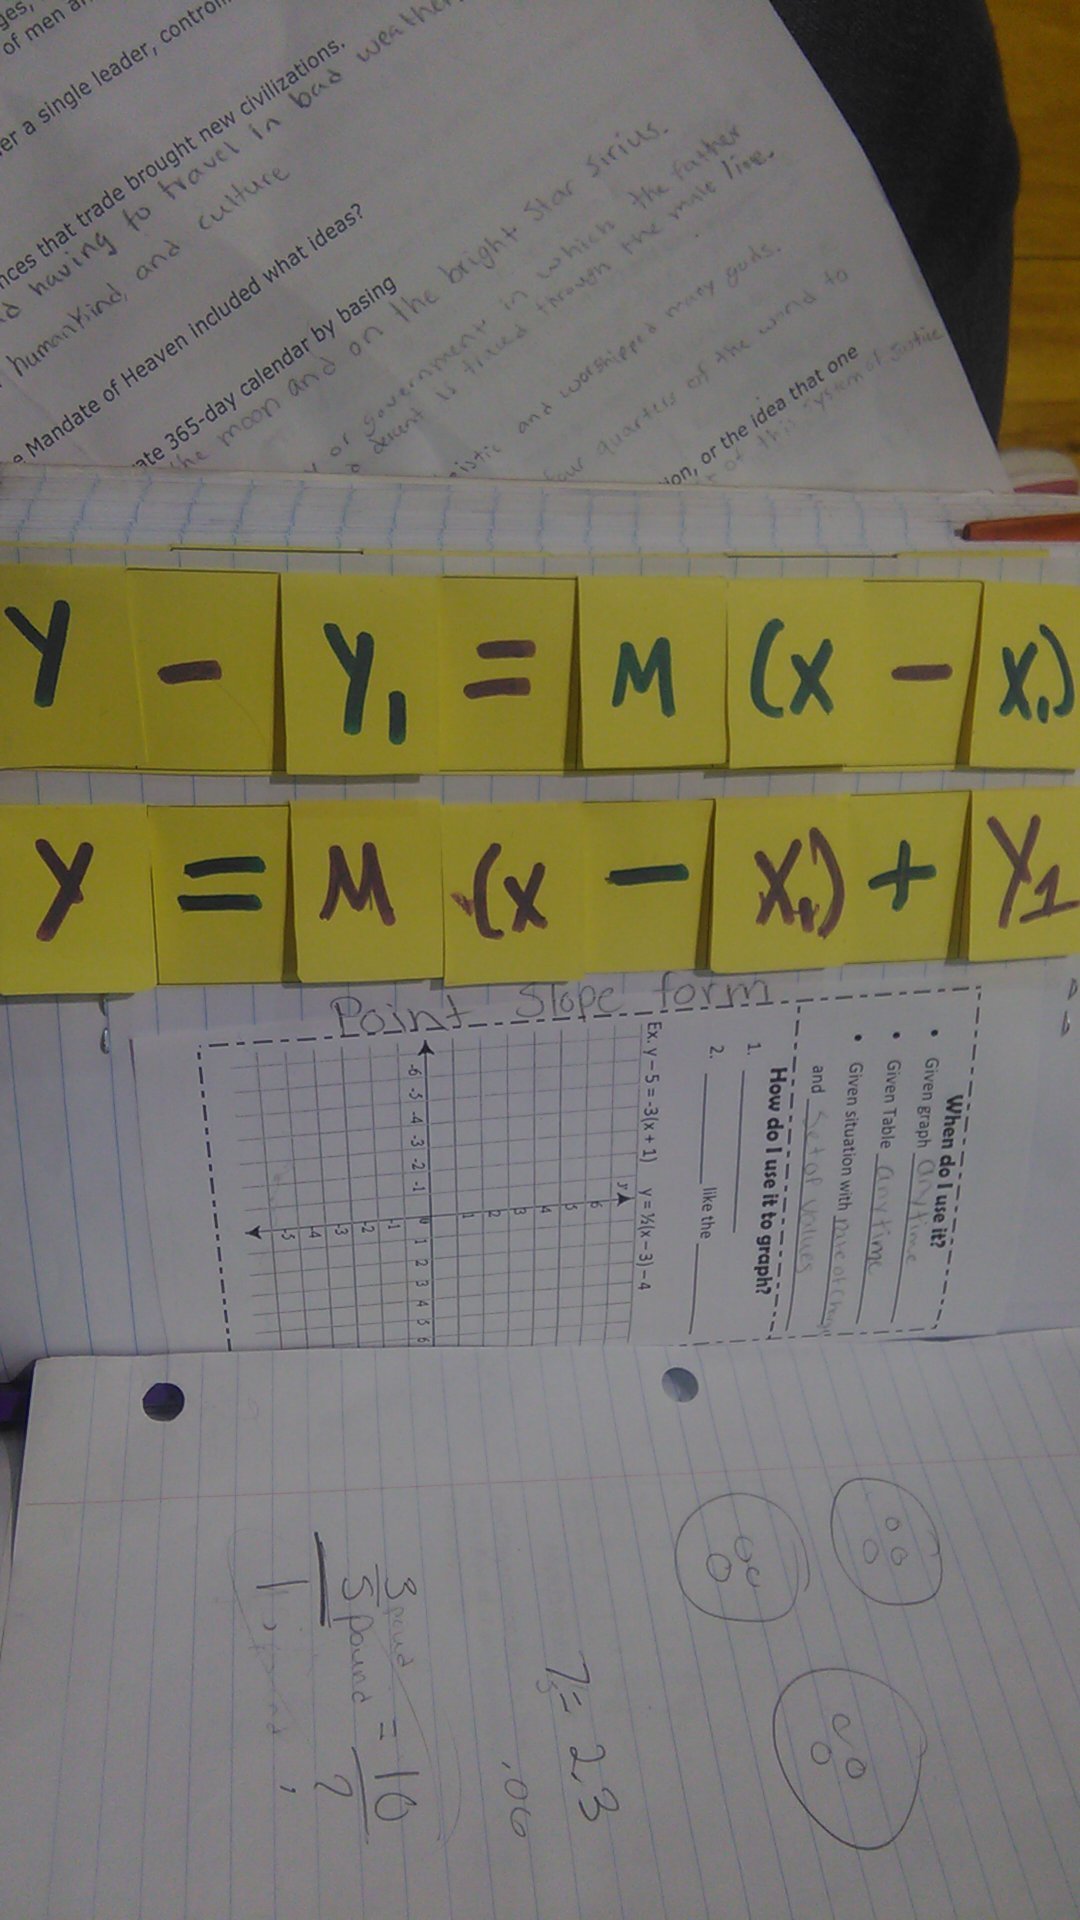 ges,
of men an
er a single leader, control
nces that trade brought new civilizations.
having to travel in bad weather
humankind, and culture
e Mandate of Heaven included what ideas?
ate 365-day calendar by basing
the moon and on the bright star Sirius.
or government in which the father
descent is traced through the male line.
istic and worshipped many gods.
four quarters of the world to
ion, or the idea that one
of this system of justice
Y - Y₁ = M (X - X₁)
Y = M (X - X₁) + Y1
Point Slope form
When do I use it?
• Given graph anytime
• Given Table anytime
• Given situation with rate of change
and set of values
How do I use it to graph?
1.
2. like the
Ex. y – 5 = -3(x + 1) y = ½(x – 3) – 4
y
6
5
4
3
2
1
-6 -5 -4 -3 -2 -1 0 1 2 3 4 5 6
-1
-2
-3
-4
-5
= 2.3
.06
3 pound = 10
5 pound ?
1